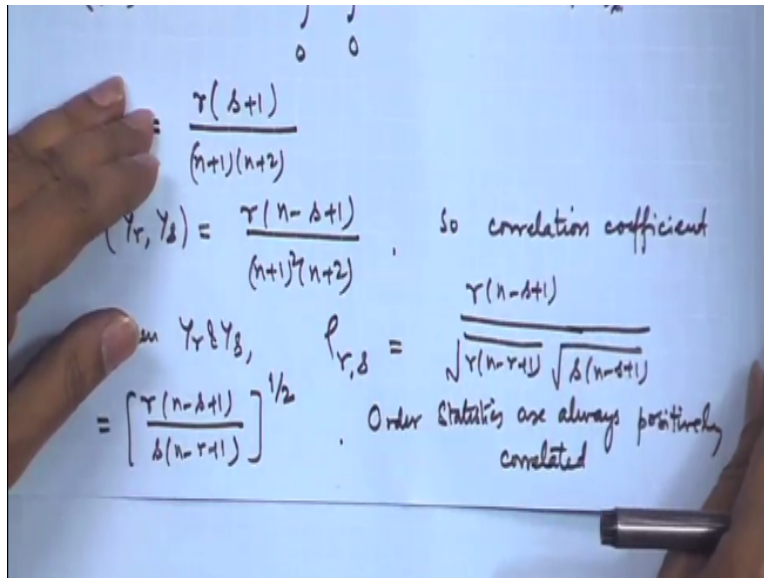 0 0
= r(s+1) / (n+1)(n+2)
(Yr, Ys) = r(n-s+1) / (n+1)²(n+2) . So correlation coefficient
en Yr & Ys, ρr,s = r(n-s+1) / √r(n-r+1) √s(n-s+1)
= [r(n-s+1) / s(n-r+1)]^1/2 . Order Statistics are always positively
correlated